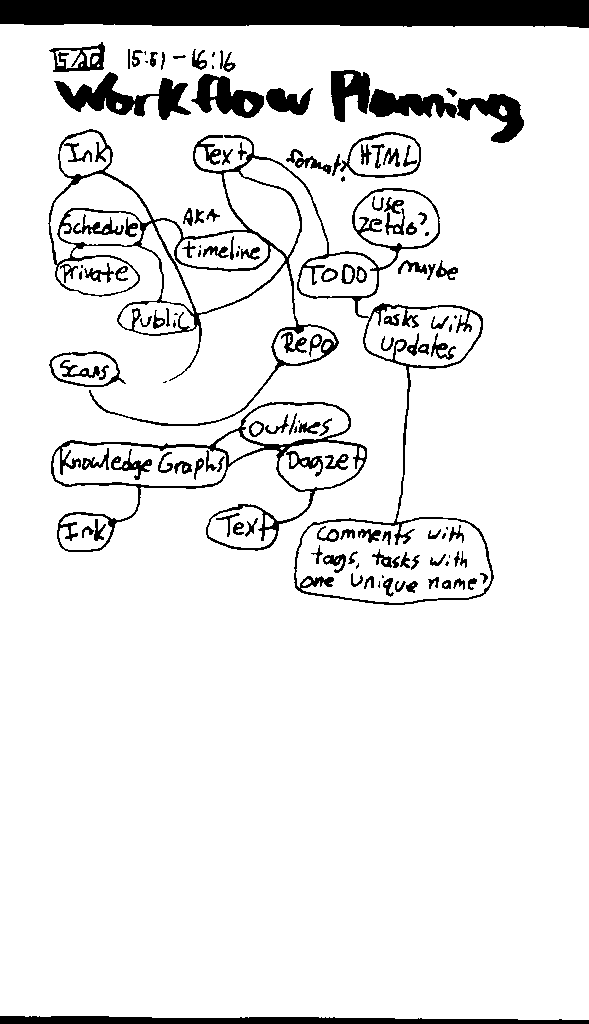 5/20 15:51-16:16
Workflow Planning
Ink
Text
format?
HTML
Schedule
AKA
timeline
use
zetdo?
Private
TODO
maybe
Public
Tasks with
updates
Repo
Scans
Outlines
Knowledge Graphs
Dagzet
Ink
Text
comments with
tags, tasks with
one unique name?